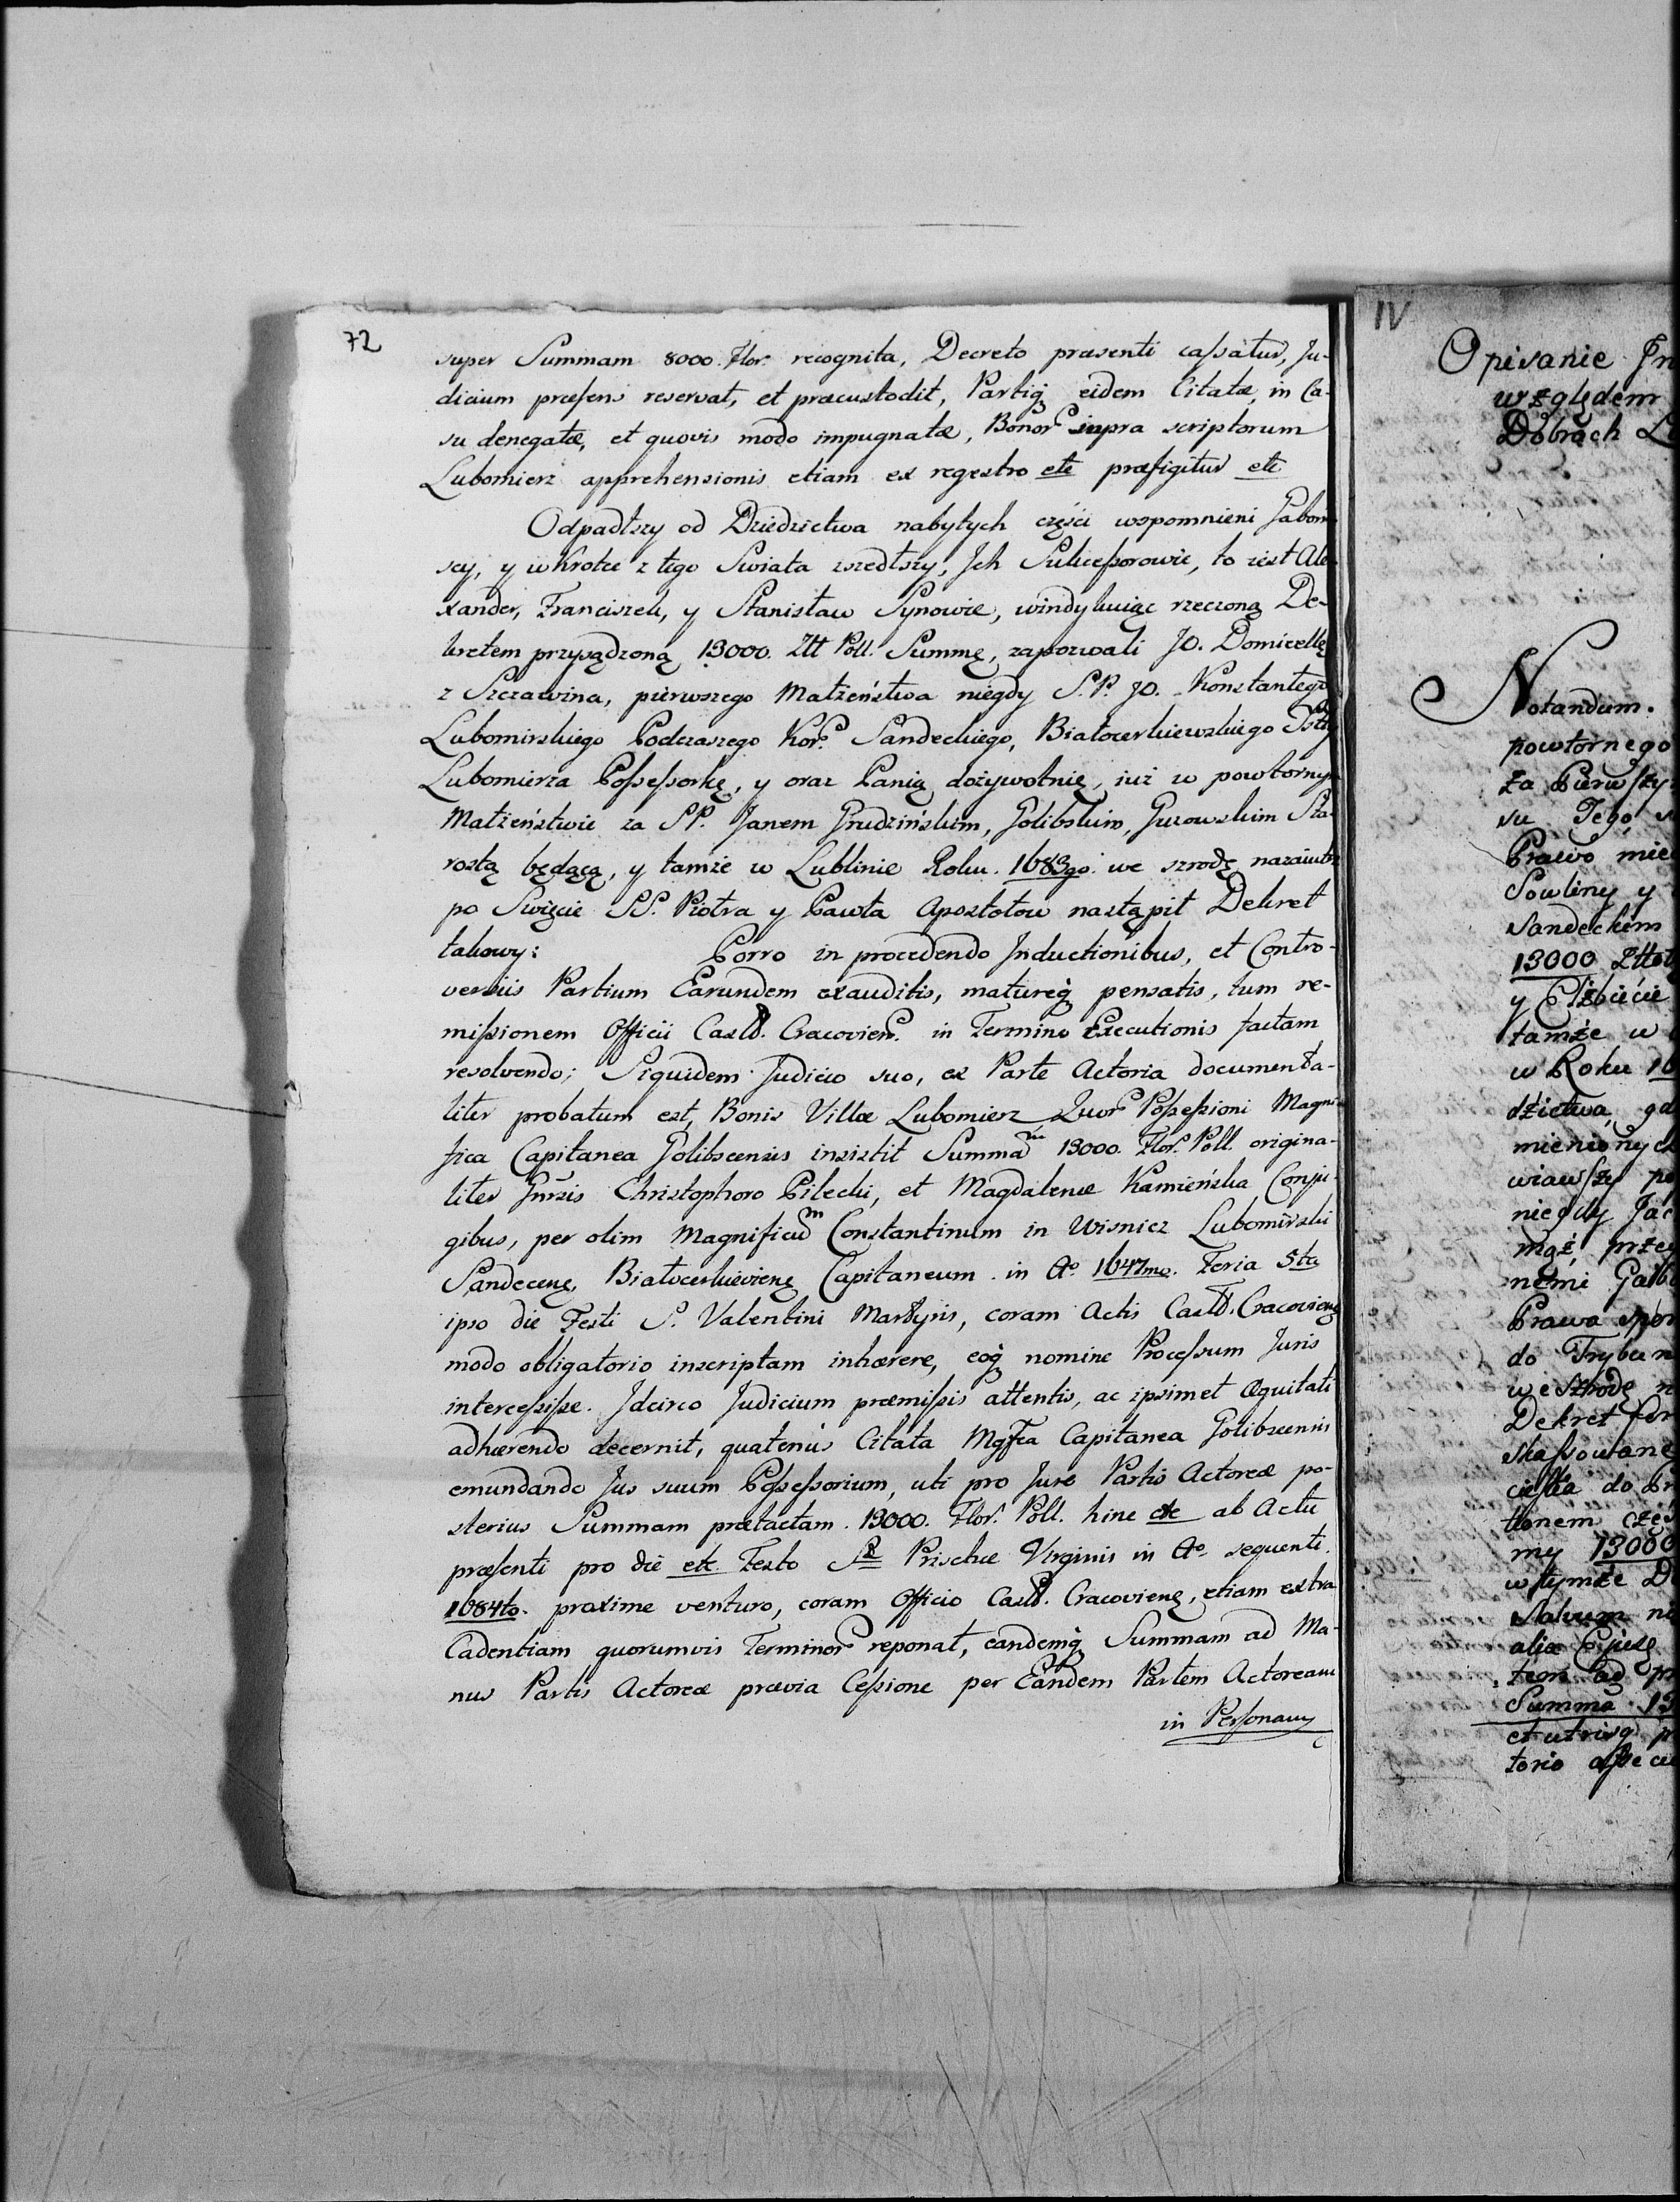 72
super Summam 8000. Flor. recognita, Decreto praesenti cassatur, Ju-
dicium praesens reservat, et praecustodit, Partiq eidem Citatae, in Ca-
su denegatae, et quovis modo impugnatae, Bonor supra scriptorum
Lubomierz apprehensionis etiam ex regestro etc praefigitur etc
Odpadłszy od Dziedzictwa nabytych części wspomnieni Gabon
scy, y w krotce z tego Swiata zszedłszy, Jch Sukcessorowie, to iest Ale-
xander, Franciszek, y Stanisław Synowie, windykuiąc rzeczoną De-
kretem przysądzoną 13000. Ztt Poll. Summę, zapozwali JO. Domicellę
z Szczawina, pierwszego Matżeństwa niegdy S.P. JO. Konstantego
Lubomirskiego Podczaszego Kor. Sandeckiego, Białocerkiewskiego Stty
Lubomierza Possessorkę, y oraz Panią dożywotnię, iuż w powtornym
Matżeństwie za S.P. Janem Grudzińskim, Golibskim, Guzowskim Sta-
rostą będącą, y tamże w Lublinie Roku. 1683go. we szrodę nazaiutrz
po Swięcie SS. Piotra y Pawła Apostołow nastąpił Dekret
takowy: Porro in procedendo Inductionibus, et Contro-
versiis Partium Earundem exauditis, matureq pensatis, tum re-
missionem Officii Castr. Cracovien. in Termino Executionis factam
resolvendo; Siquidem Judicio suo, ex Parte Actorea documenta-
liter probatum est, Bonis Villae Lubomierz, Quor Possessioni Magni-
fica Capitanea Golibscensis insistit Summam 13000. Flor. Poll. origina-
liter Gnrsis Christophoro Pilecki, et Magdalenae Kamieńska Conju-
gibus, per olim Magnificum Constantinum in Wisnicz Lubomirski
Sandecens, Białocerkieviens Capitaneum in Ao. 1647mo. Feria 5ta
ipso die Festi S. Valentini Martyris, coram Actis Castr. Cracoviens
modo obligatorio inscriptam inhaerere, eoq nomine Processum Juris
intercessisse. Idcirco Judicium praemissis attentis, ac ipsimet Aequitati
adhaerendo decernit, quatenus Citata Mgfca Capitanea Golibscensis
emundando Jus suum Possessorium, uti pro Jure Partis Actoreae po-
sterius Summam praetactam 13000. Flor. Poll. hinc etc ab Actu
praesenti pro die etc. Festo S Priscae Virginis in Ao. sequenti
1684to. proxime venturo, coram Officio Castr. Cracoviens, etiam extra
Cadentiam quorumvis Terminor reponat, eandemq Summam ad Ma-
nus Partis Actoreae praevia Cessione per Eandem Partem Actoream
in Personam
IV
Opisanie
względem
Dobrach
Notandum.
powtornego
za Pierwszy
su Tego
Prawo
Sowliny y
Sandeckim
13000
y Elżbiecie
tamże w
w Roku 16
dzictwa
mienionych
wiawszy
niegdy Jac
mąż
nemi
Prawa
do Trybun
we szrodę
Dekret
skassowane
do
tionem
my 13000
w tymże
Salvum
aliae
tem ad
Summa 13
et utrisq
torio